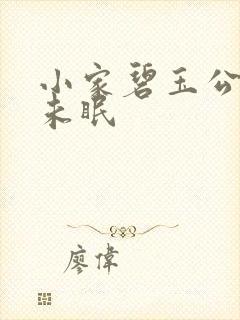 小家碧玉公
未眠
廖偉